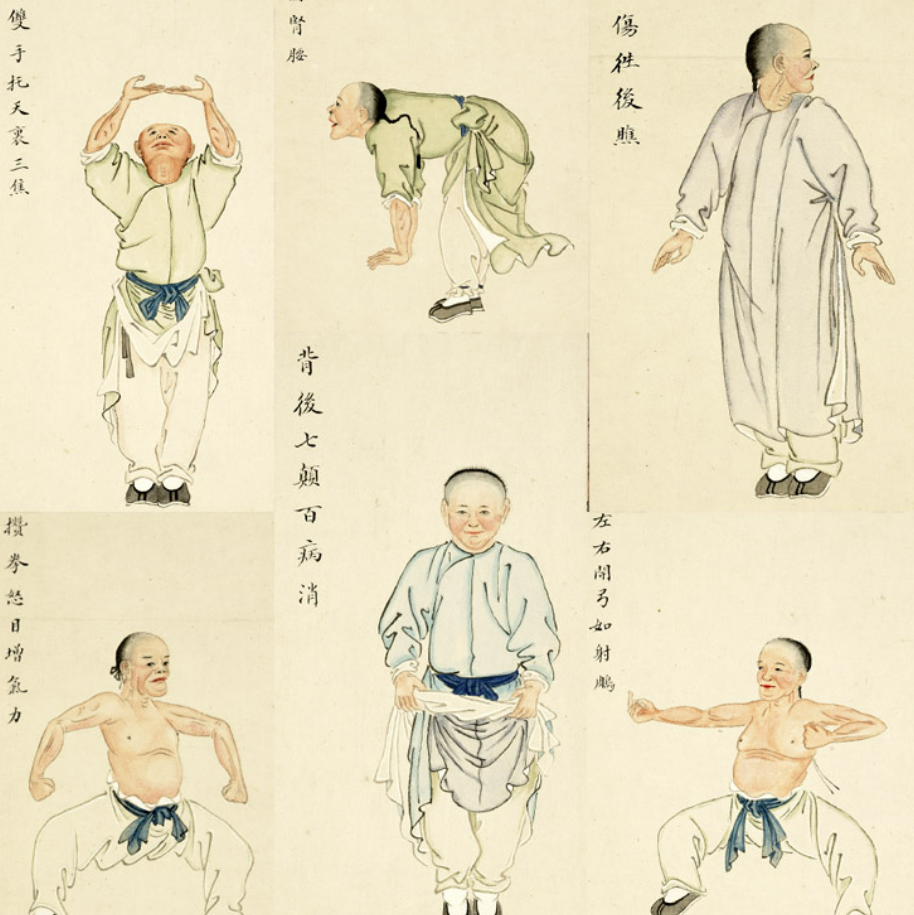 雙手托天裏三焦
腎腰
傷徃後瞧
背後七顛百病消
攢拳怒目增氣力
左右開弓如射鵰